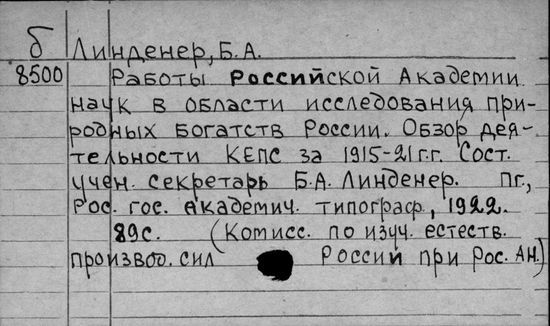 б Линденер, Б.А.
8500 Работы Российской Академии
наук в области исследования при-
родных богатств России. Обзор дея-
тельности КЕПС за 1915-21 г.г. Сост.
учен. секретарь Б.А. Линденер. Пг,
Рос. гос. академич. типограф., 1922.
89с. (Комисс. по изуч. естеств.
производ. сил России при Рос. АН.)